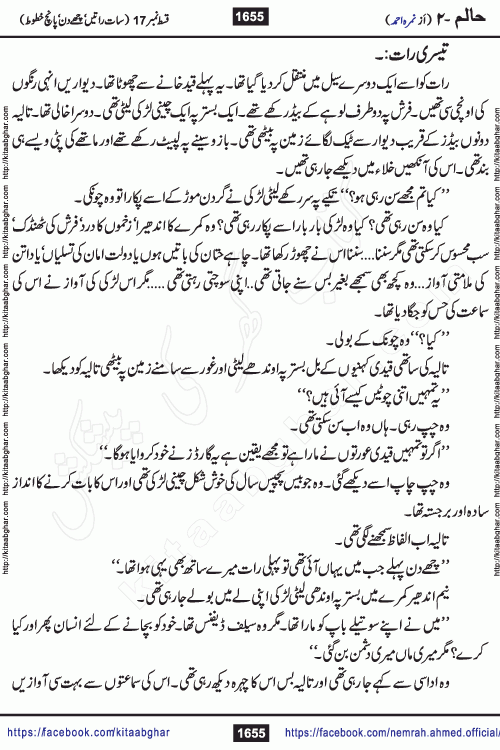 حالم -۲ (از نمرہ احمد)
1655
قسط نمبر 17 (سات راتیں' چھے دن' پانچ خطوط)
تیسری رات:۔
رات کو اسے ایک دوسرے سیل میں منتقل کر دیا گیا تھا۔ یہ پہلے قید خانے سے چھوٹا تھا۔ دیواریں انہی رنگوں
کی اونچی سی تھیں۔ فرش پہ دو طرف لوہے کے بیڈ رکھے تھے۔ ایک بستر پہ ایک چینی لڑکی لیٹی تھی۔ دوسرا خالی تھا۔ تالیہ
دونوں بیڈز کے قریب دیوار سے ٹیک لگائے زمین پہ بیٹھی تھی۔ بازو سینے پہ لپیٹ رکھے تھے اور ماتھے کی پٹی ویسے ہی
بندھی تھی۔ اس کی آنکھیں خلاء میں دیکھے جا رہی تھیں۔
’’کیا تم مجھے سن رہی ہو؟‘‘ تکیے پہ سر رکھے لیٹی لڑکی نے گردن موڑ کے اسے پکارا تو وہ چونکی۔
کیا وہ سن رہی تھی؟ کیا وہ لڑکی بار بار اسے پکار رہی تھی؟ وہ کمرے کا اندھیرا' زخموں کا درد' فرش کی ٹھنڈک'
سب محسوس کر سکتی تھی مگر سننا...سننا اس نے چھوڑ رکھا تھا۔ چاہے عثمان کی باتیں ہوں یا دولت امان کی تسلیاں' یا داتن
کی ملامتی آواز...وہ کچھ بھی سمجھے بغیر بس سنے جاتی تھی..اپنی سوچتی رہتی تھی ....مگر اس لڑکی کی آواز نے اس کی
سماعت کی حس کو جگا دیا تھا۔
’’کیا؟‘‘ وہ چونک کے بولی۔
تالیہ کی ساتھی قیدی کہنیوں کے بل بستر پہ اوندھے لیٹی اور غور سے سامنے زمین پہ بیٹھی تالیہ کو دیکھا۔
’’یہ تمہیں اتنی چوٹیں کیسے آئی ہیں؟‘‘
وہ چپ رہی۔ ہاں وہ اب سن سکتی تھی۔
’’اگر تو تمہیں قیدی عورتوں نے مارا ہے تو مجھے یقین ہے یہ گارڈز نے خود کروایا ہوگا۔‘‘
وہ چپ چاپ اسے دیکھے گئی۔ وہ جو بیس پچیس سال کی خوش شکل چینی لڑکی تھی اور اس کا بات کرنے کا انداز
سادہ اور برجستہ تھا۔
تالیہ اب الفاظ سمجھنے لگی تھی۔
’’چھے دن پہلے جب میں یہاں آئی تھی تو پہلی رات میرے ساتھ بھی یہی ہوا تھا۔‘‘
نیم اندھیر کمرے میں بستر پہ اوندھی لیٹی لڑکی اپنی لے میں بولے جا رہی تھی۔
’’میں نے اپنے سوتیلے باپ کو مارا تھا۔ مگر وہ سیلف ڈیفنس تھا۔ خود کو بچانے کے لئے انسان پھر اور کیا
کرے؟ مگر میری ماں میری دشمن بن گئی۔‘‘
وہ اداسی سے کہے جا رہی تھی اور تالیہ بس اس کا چہرہ دیکھ رہی تھی۔ اس کی سماعتوں سے بہت سی آوازیں
https://facebook.com/kitaabghar
1655
https://facebook.com/nemrah.ahmed.official/
http://kitaabghar.com http://kitaabghar.com http://kitaabghar.com http://kitaabghar.com http://kitaabghar.com
http://kitaabghar.com http://kitaabghar.com http://kitaabghar.com http://kitaabghar.com http://kitaabghar.com